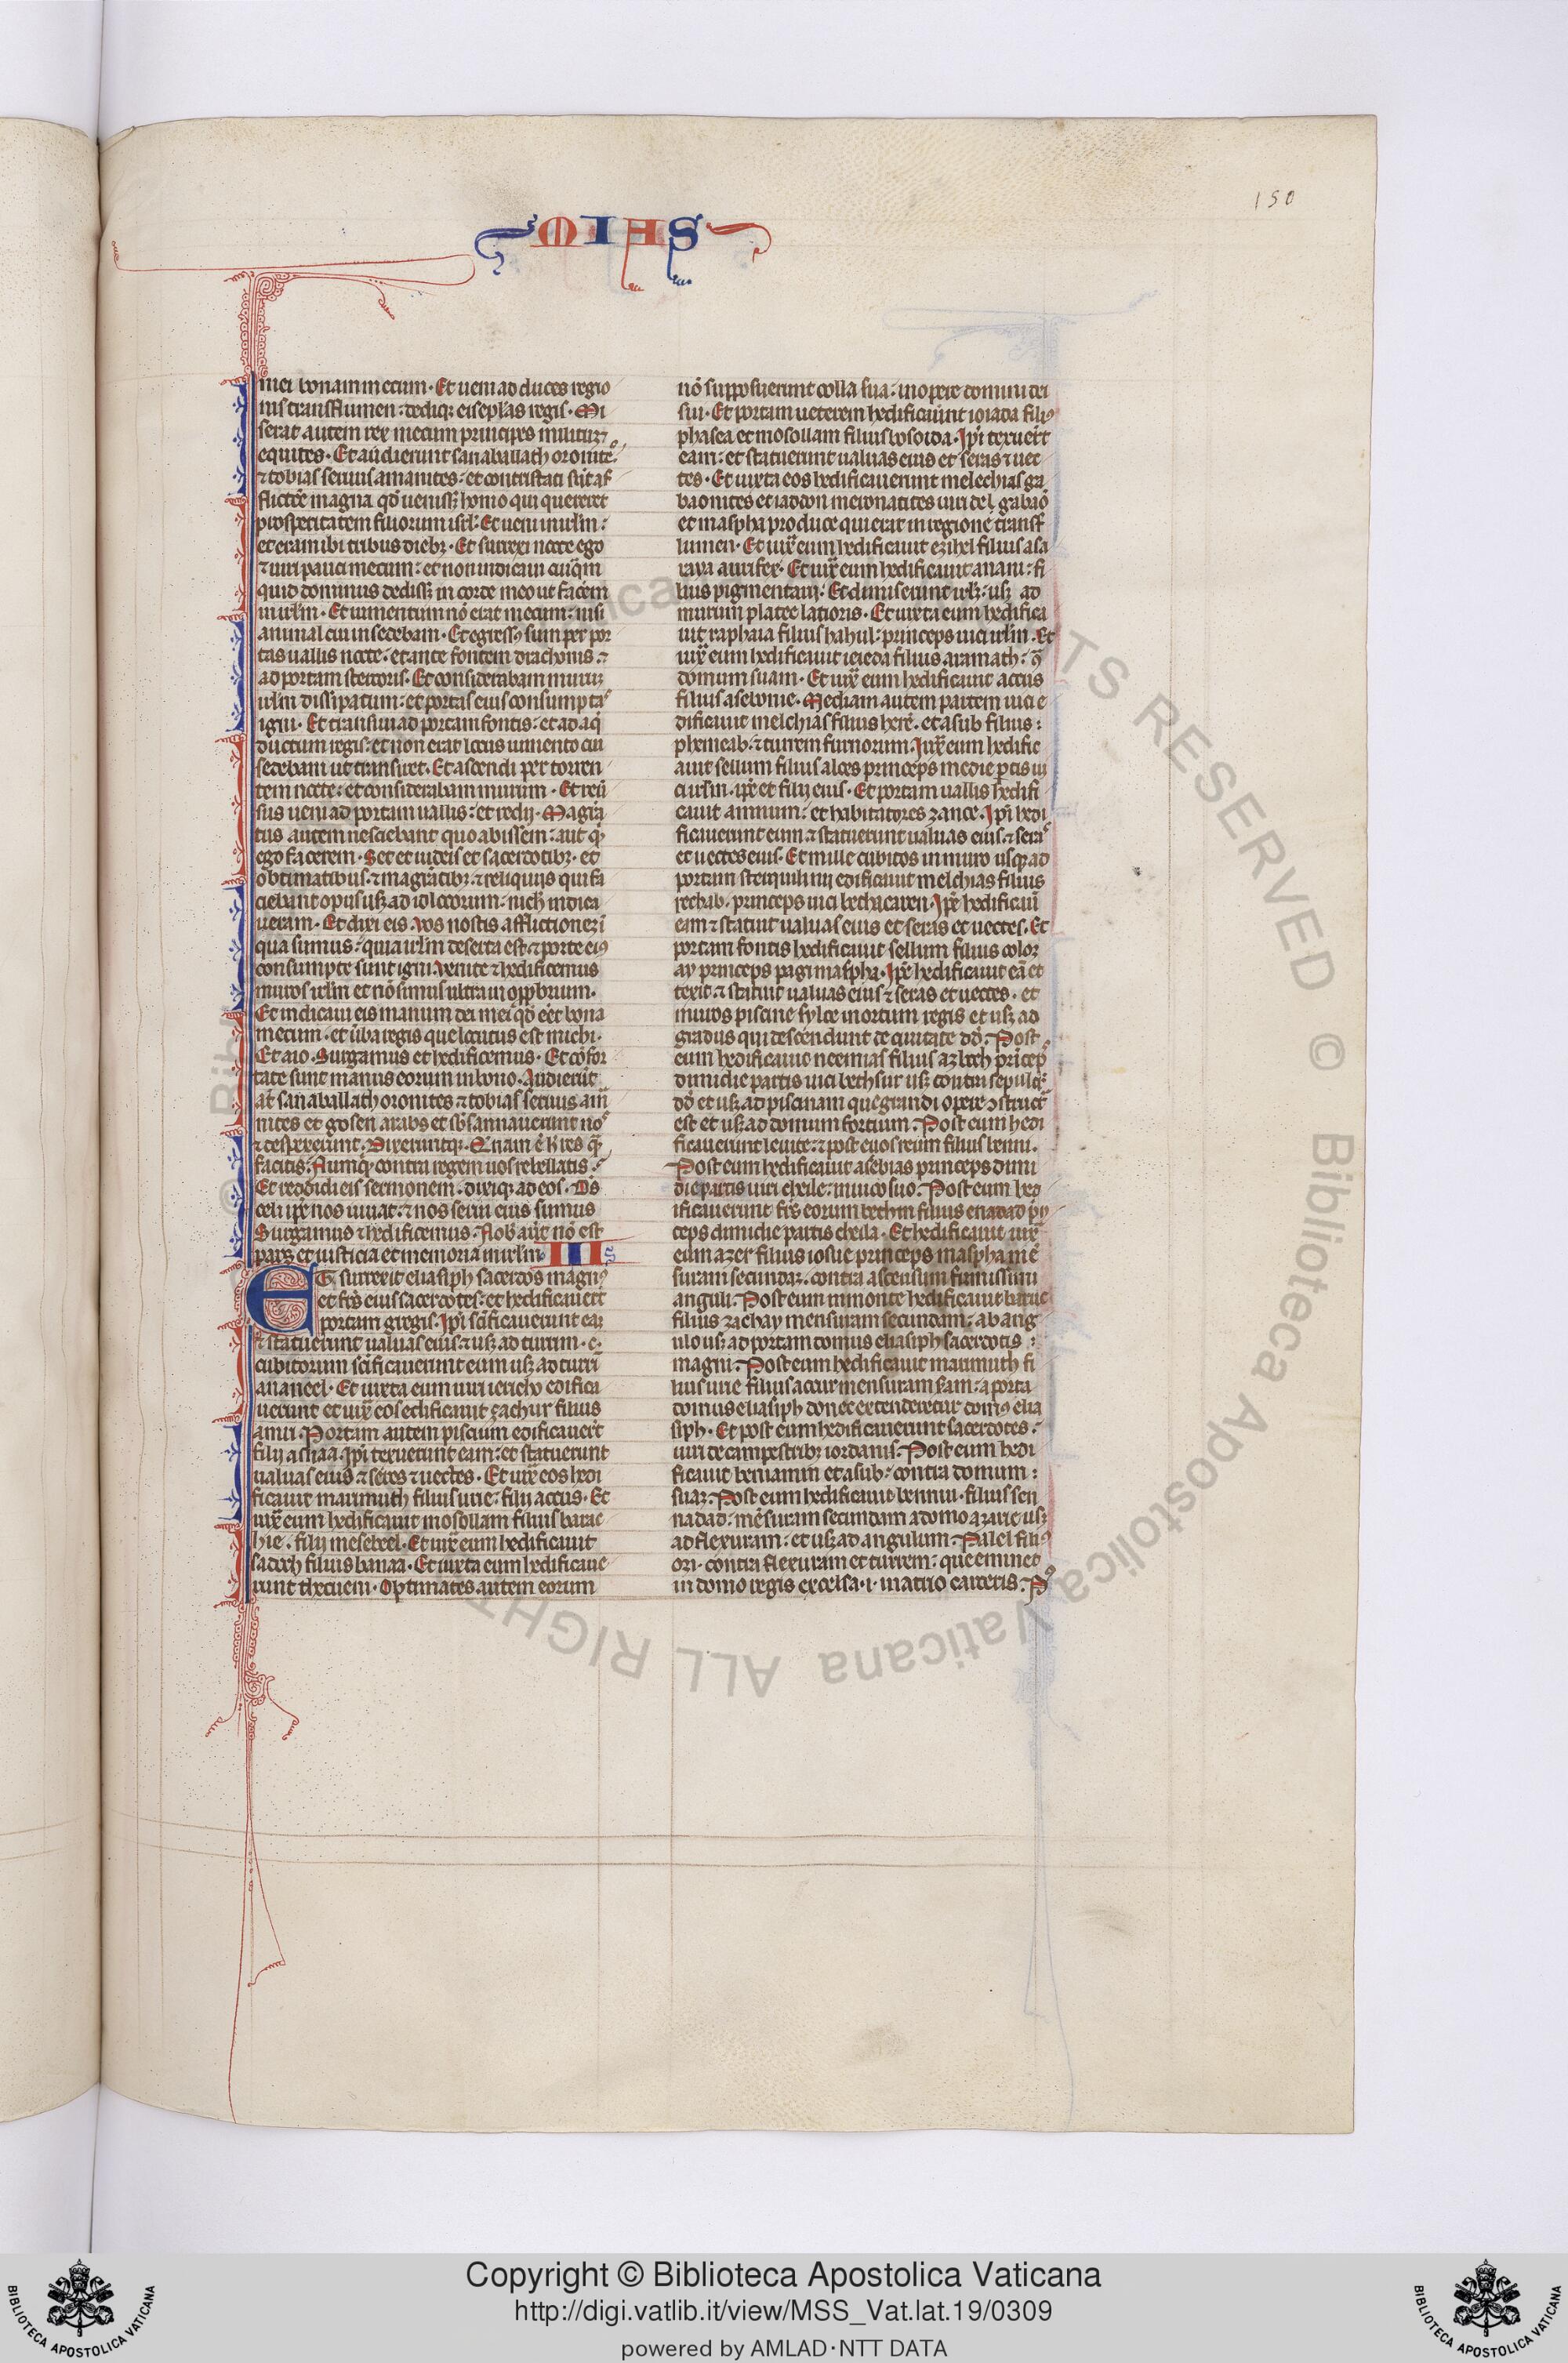 150
MIAS
mei bonam mecum. Et ueni ad duces regio
nis transflumen: dediq; eis eplās regis. Mi
serat autem rex mecum principes militum ⁊
equites. Et audierunt sanaballath oronites
⁊ tobias seruus amanites: et contristati sūt af
flictōe magna qd̄ uenisset homo qui quereret
prosperitatem filiorum isrl̄. Et ueni in irl̄m:
et eram ibi tribus dieb;. Et surrexi nocte ego
⁊ uiri pauci mecum: et non indicaui cuiq̄m
quid dominus dediss; in corde meo ut facerem
in irl̄m. Et iumentum nō erat mecum: nisi
animal cui insedebam. Et egressus sum per por
tas uallis nocte. et ante fontem drachonis ⁊
ad portam stercoris. Et considerabam murum
irl̄m dissipatum: et portas eius consumptas
igni. Et transiui ad portam fontis: et ad aq̄
ductum regis: et non erat locus iumento cui
sedebam ut transiret. Et ascendi per torren
tem nocte: et considerabam murum. Et reū
sus ueni ad portam uallis: et redij. Magra
tus autem nesciebant quo abissem: aut q̄
ego facerem. Set et iudeis et sacerdotib;. et
obtimatibus. ⁊ magratib; ⁊ reliquijs qui fa
ciebant opus us; ad id locorum: nich̄ indica
ueram. Et dixi eis. Uos nostis afflictionem ī
qua sumus: quia irl̄m deserta est. ⁊ porte eius
consumpte sunt igni. Venite ⁊ hedificemus
muros irl̄m et nō simus ultra in opprobrium.
Et indicaui eis manum dei mei qd̄ eēt bona
mecum. et ūba regis que locutus est michi.
Et aio. Surgamus et hedificemus. Et cōfor
tate sunt manus eorum in bono. Audierūt
at̄ sanaballath oronites ⁊ tobias seruus am̄
nites et gosen arabs et sb̄sannauerunt nos
⁊ despexerunt. Dixeruntq;. Q̄nam ē h̄ res q̄
facitis. Numq̄ contra regem uos rebellatis.
Et reddidi eis sermonem. dixiq; ad eos. D̄s
celi ip̄e nos iuuat: ⁊ nos serui eius sumus
Surgamus ⁊ hedificemus. Uob̄ aūt nō est
pars et iusticia et memoria in irl̄m. III
ET surrexit eliasiph sacerdos magnus
et fr̄s eius sacerdotes: et hedificauert̄
portam gregis. Ip̄i sc̄ificauerunt eam
⁊ statuerunt ualuas eius: ⁊ us; ad turrim. c.
cubitorum sc̄ificauerunt eum us; ad turrī
ananeel. Et iuxta eum uiri iericho edifica
uerunt et iux̄ eos edificauit zachur filius
amri. Portam autem piscium edificauert̄
filij asnaa. Ip̄i texuerunt eam: et statuerunt
ualuas eius ⁊ seras ⁊ uectes. Et iux̄ eos hedi
ficauit marimuth filius urie: filij accus. Et
iux̄ eum hedificauit mosollam filius barac
hie. filij mesebel. Et iux̄ eum hedificauit
sadoch filius banaa. Et iuxta eum hedificaue
runt thecueni. Optimates autem eorum
nō supposuerunt colla sua: in opere domini dei
sui. Et portam ueterem hedificauerunt ioiada filius
phasea et mosollam filius bosoida. Ip̄i texuert̄
eam: et statuerunt ualuas eius et seras ⁊ uec
tes. Et iuxta eos hedificauerunt melechias ga
baonites et iaddon meronatites uiri de gabaō
et maspha pro duce qui erat in regione transf
lumen. Et iux̄ eum hedificauit ezihel filius asa
raya aurifex. Et iux̄ eum hedificauit anani: fi
lius pigmentarij. Et dimiserunt irl̄m: us; ad
murum platee latioris. Et iuxta eum hedifica
uit raphaia filius hahul: princeps uici irl̄m. Et
iux̄ eum hedificauit ieieda filius aramath: ꝯ
domum suam. Et iux̄ eum hedificauit accus
filius asebonie. Mediam autem partem uici e
dificauit melchias filius herē. et asub filius:
phemeab. ⁊ turrem furnorum. Iux̄ eum hedific
auit sellum filius aloes princeps medie ꝑtis ui
ci irl̄m. ip̄e et filij eius. Et portam uallis hedifi
cauit annum: et habitatores zanoe. Ip̄i hedi
ficauerunt eum ⁊ statuerunt ualuas eius. ⁊ seras
et uectes eius. Et mille cubitos in muro usq; ad
portam sterquilinij edificauit melchias filius
rechab. princeps uici bethacaren. Ip̄e hedificauit
eam ⁊ statuit ualuas eius et seras et uectes. Et
portam fontis hedificauit sellum filius coloz
ay princeps pagi maspha. Ip̄e hedificauit eā et
texit. ⁊ statuit ualuas eius ⁊ seras et uectes. et
muros piscine syloe in ortum regis et us; ad
gradus qui descendunt de ciuitate dd̄. Post
eum hedificauit neemias filius azboch princeps
dimidie partis uici bethsur us; contra sepulc̄
dd̄ et us; ad piscinam que grandi opere ꝯstructa
est et us; ad domum fortium. Post eum hedi
ficauerunt leuite: ⁊ post euos reum filius benni.
Post eum hedificauit asebias princeps dimi
die partis uici cheile: in uico suo. Post eum hed
ificauerunt fr̄s eorum bethin filius enadad prin
ceps dimidie partis cheila. Et hedificauit iux̄
eum azer filius iosue princeps maspha mē
suram secundam. contra ascensum firmissimi
anguli. Post eum in monte hedificauit baruc
filius zachay mensuram secundam: ab ang
ulo us; ad portam domus eliasiph sacerdotis:
magni. Post eum hedificauit marimuth fi
lius urie filius accur mensuram sc̄am: a porta
domus eliasiph donec extenderetur domus elia
siph. Et post eum hedificauerunt sacerdotes:
uiri de campestrib; iordanis. Post eum hedi
ficauit beniamin et asub: contra domum:
suam. Post eum hedificauit bennui. filius sen
nadad: mēsuram secundam a domo azarie us;
ad flexuram: et us; ad angulum. Palel filius
ozi. contra flexuram et turrem: que eminet
in domo regis excelsa. i. in atrio carceris. Pꝰ
© Biblioteca Apostolica Vaticana ALL RIGHTS RESERVED
Copyright © Biblioteca Apostolica Vaticana
http://digi.vatlib.it/view/MSS_Vat.lat.19/0309
powered by AMLAD·NTT DATA
BIBLIOTECA APOSTOLICA VATICANA
BIBLIOTECA APOSTOLICA VATICANA